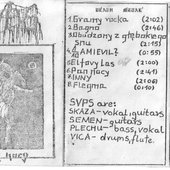 1. Bramy rocka (2:02)
2. Bagna (2:46)
3. Obudzony z głębokiego
snu (2:15)
4. ZAMIEVIL? (0:55)
5. Elfovy las (2:00)
6. Pan Nocy (2:41)
7. INNY (2:06)
8. Flegma (0:10)
SVPS are:
SKAZA - vokal, guitars
SEMEN - guitars
PLECHU - bass, vokal
VICA - drums, flute.